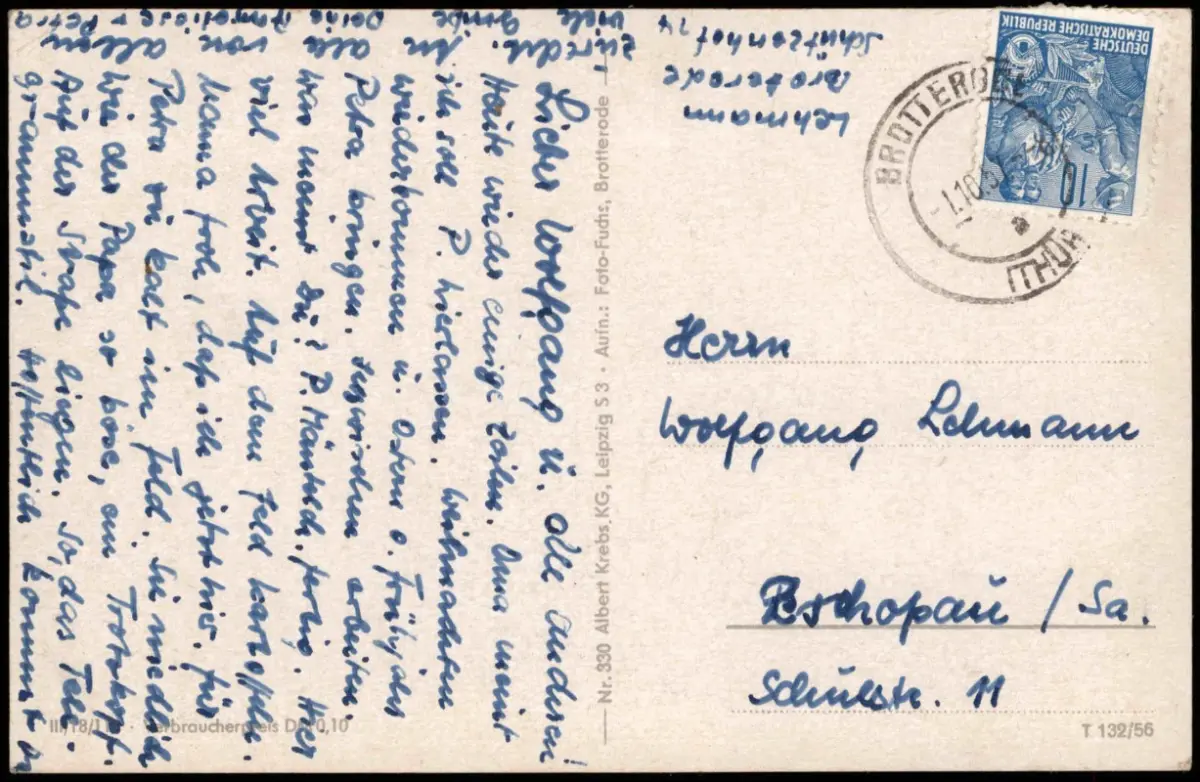 Lieber Wolfgang u. alle anderen!
Heute wieder einige Zeilen. Oma meint
ich soll P. hierlassen. Weihnachten
wiederkommen u. Ostern o. Frühjahr
Petra bringen. Inzwischen arbeiten.
was meint Du? P. Mäntelch. fertig. Hier
viel Arbeit. Auf dem Feld Kartoffeln.
Mama froh, daß ich jetzt hier. Für
Petra zu kalt im Feld. Sie niedlich
Wie der Papa so böse, ein Trotzkopf.
Auf der Straße liegen. So, das Tele-
grammstil. Hoffentlich kommst Du
zurecht.
viele Grüße
von allen
Deine + Petra
Lehmann
Brotterode
Schützenhof 14
DEUTSCHE
DEMOKRATISCHE REPUBLIK
10
BROTTERODE
(THÜR
1.10.5
Herrn
Wolfgang Lehmann
Zschopau / Sa.
Schulstr. 11
Nr. 330 Albert Krebs, KG, Leipzig S 3 · Aufn.: Foto-Fuchs, Brotterode
III/18/1 Verbraucherpreis DM 0,10
T 132/56